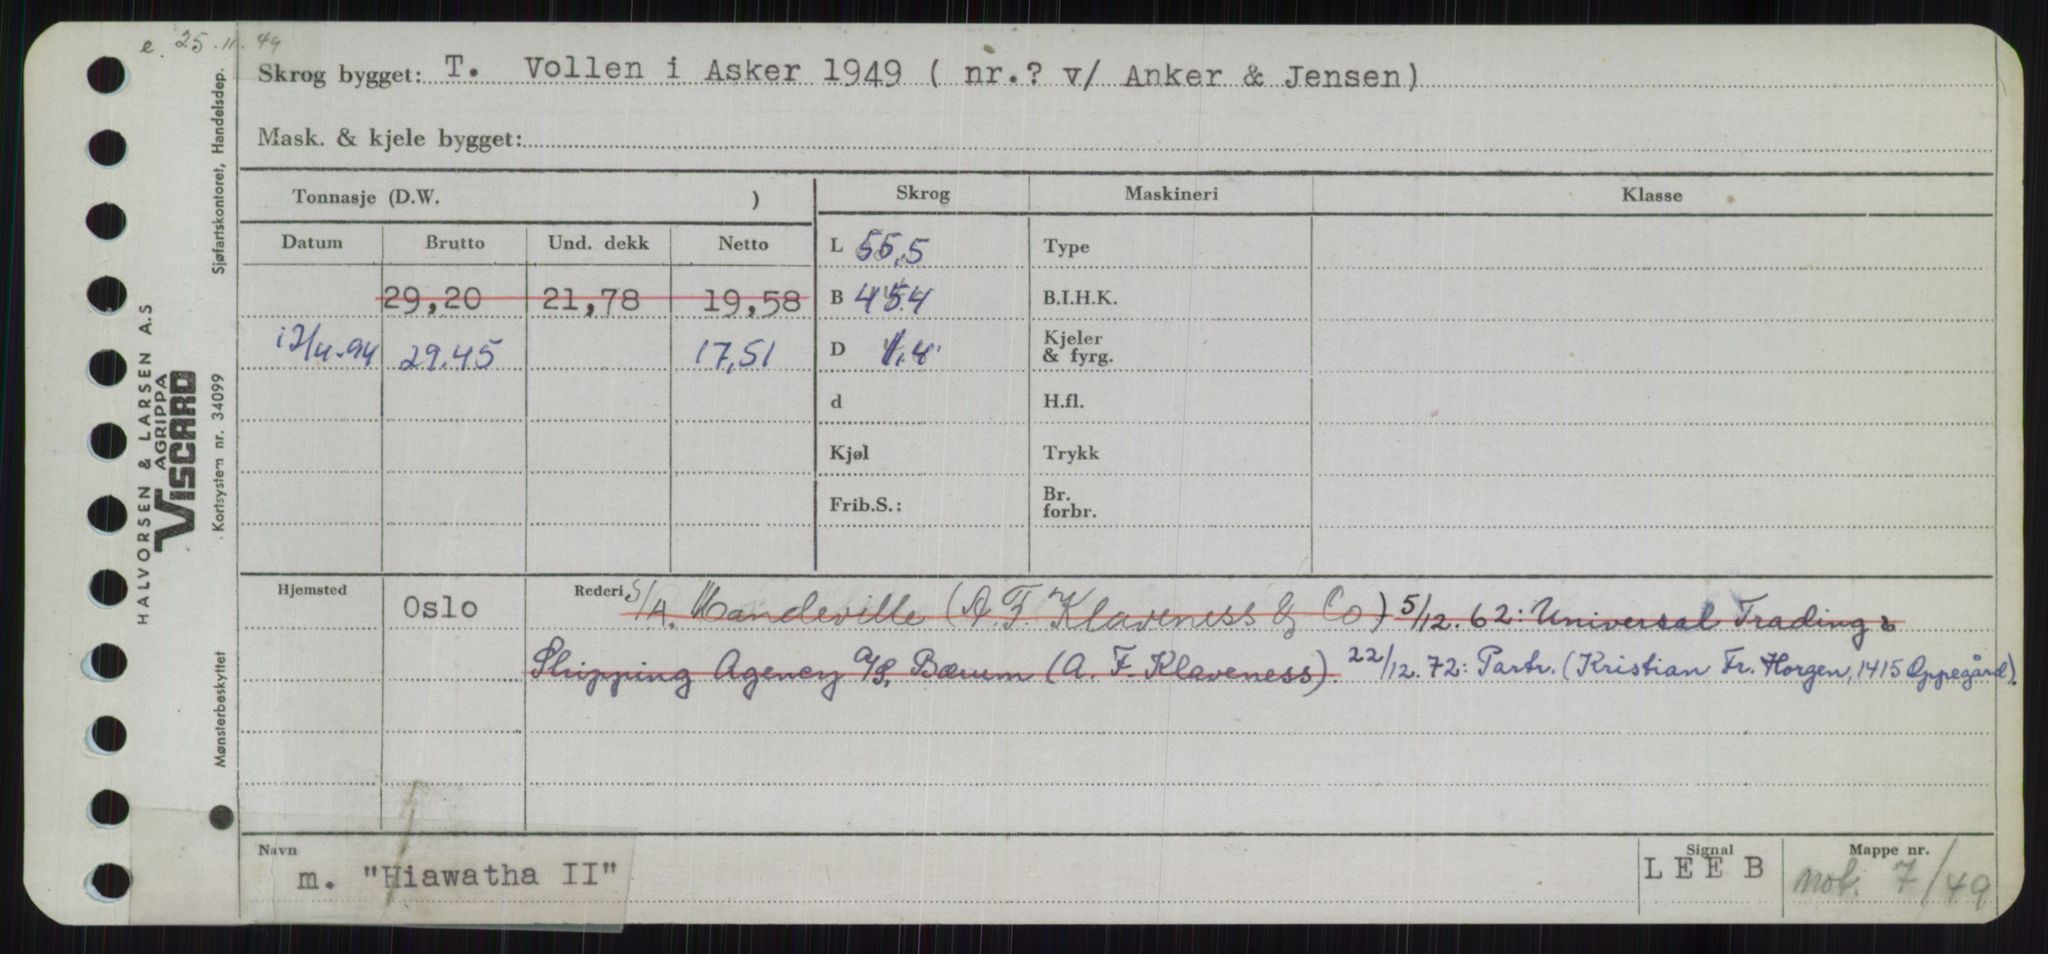 e. 25.11.49
Skrog bygget: T. Vollen i Asker 1949 ( nr.? v/ Anker & Jensen)
Mask. & kjele bygget:
Tonnasje (D.W. )
Skrog Maskineri Klasse
Datum Brutto Und. dekk Netto
L 55,5 Type
29,20 21,78 19,58
B B.I.H.K.
29.45 17,51
D 1.4 Kjeler & fyrg.
d H.fl.
Kjøl Trykk
Frib.S.: Br. forbr.
Hjemsted Oslo Rederi S/A. Mandeville (A.F. Klaveness & Co) 5/12.62: Universal Trading &
Shipping Agency A/S, Bærum (A. F. Klaveness). 22/12.72: Partr. (Kristian Fr. Horgen, 1415 Oppegård).
Navn Signal Mappe nr.
m. "Hiawatha II" LEEB not. 7/49
HALVORSEN & LARSEN A.S
AGRIPPA
VISCARD
Mønsterbeskyttet Kortsystem nr. 34099 Sjøfartskontoret, Handelsdep.